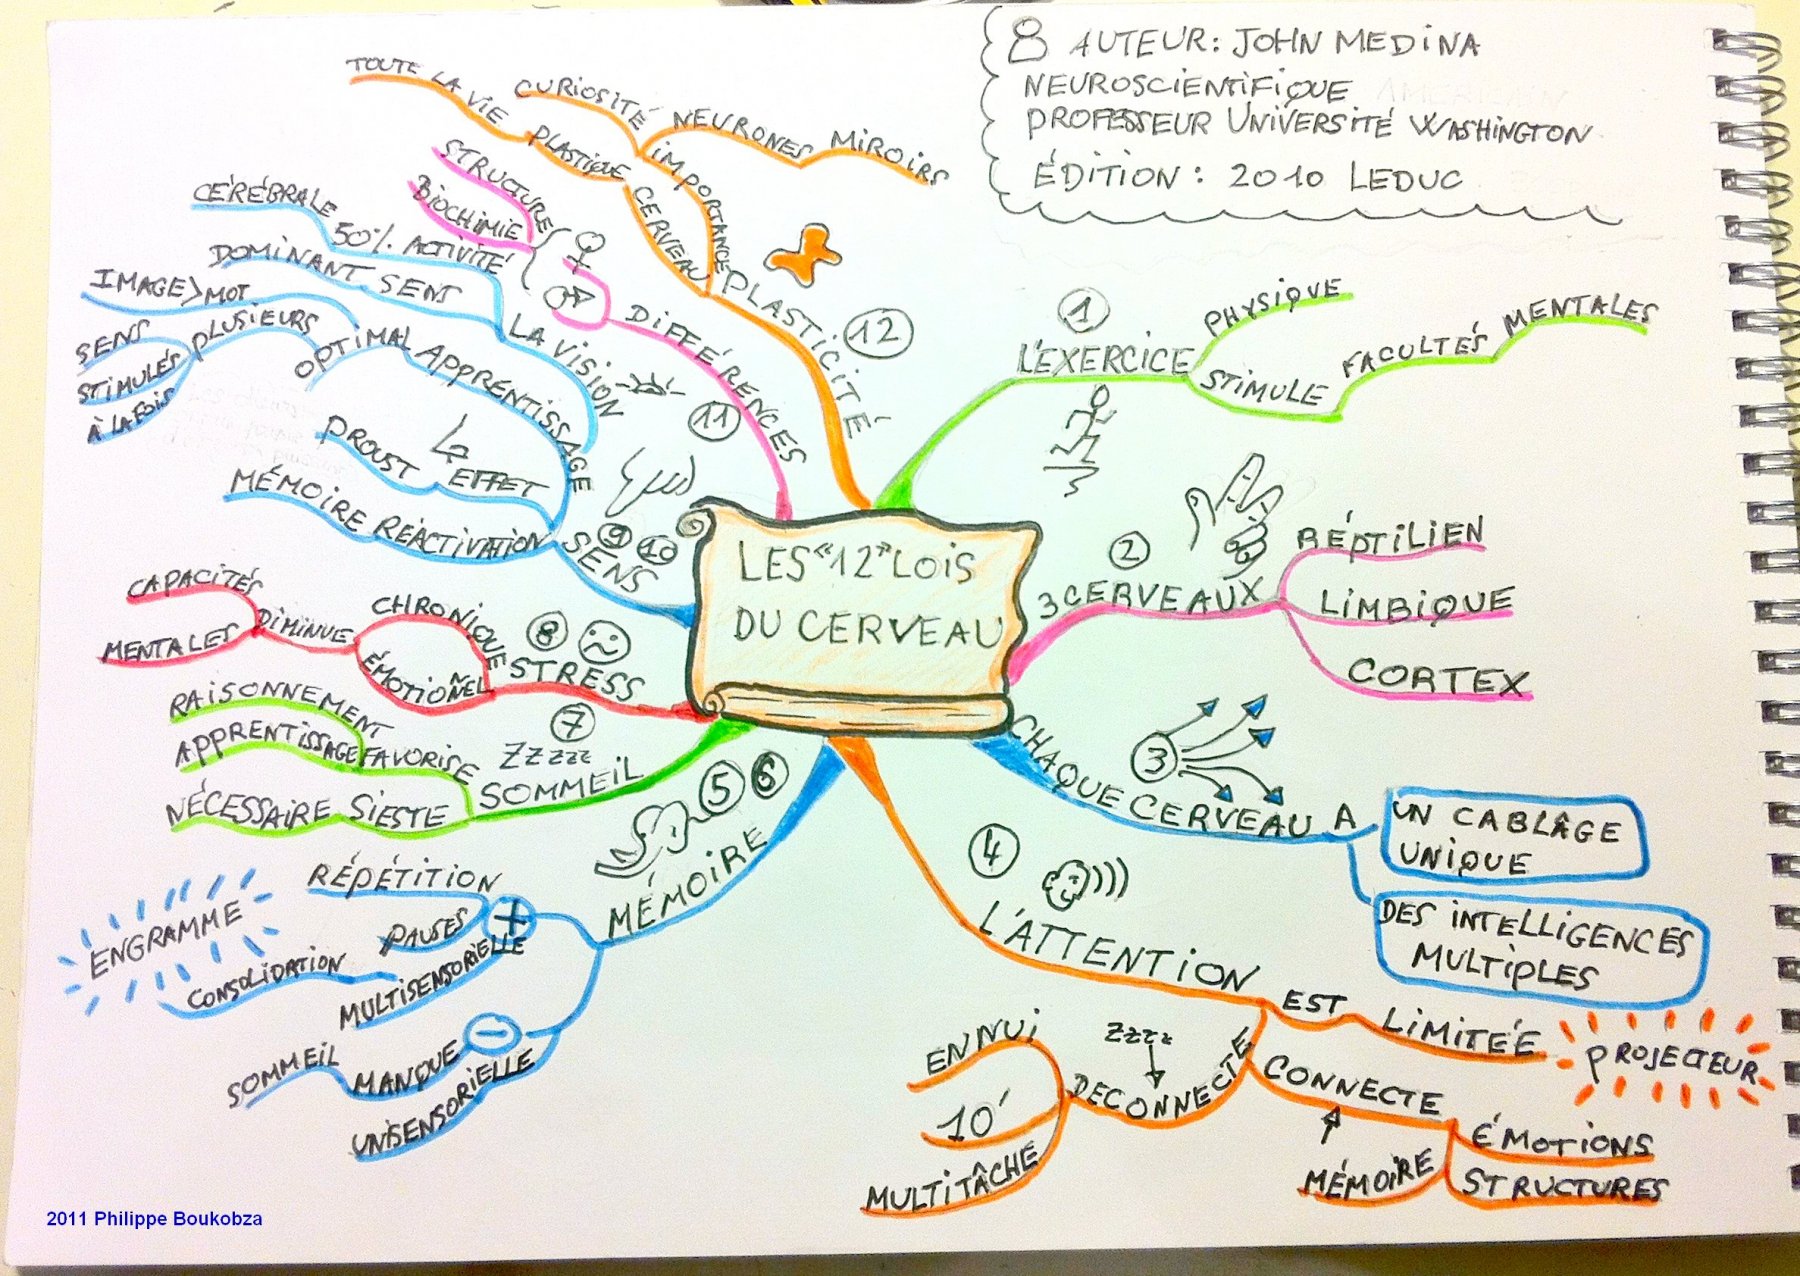 AUTEUR: JOHN MEDINA
NEUROSCIENTIFIQUE
PROFESSEUR UNIVERSITÉ WASHINGTON
ÉDITION: 2010 LEDUC
LES "12" LOIS
DU CERVEAU
1
L'EXERCICE
PHYSIQUE
STIMULE
FACULTÉS
MENTALES
2
3 CERVEAUX
RÉPTILIEN
LIMBIQUE
CORTEX
3
CHAQUE CERVEAU A
UN CABLÂGE
UNIQUE
DES INTELLIGENCES
MULTIPLES
4
L'ATTENTION
EST LIMITÉE
PROJECTEUR
CONNECTE
ÉMOTIONS
STRUCTURES
MÉMOIRE
DECONNECTE
ZZZZ
ENNUI
10'
MULTITÂCHE
5 6
MÉMOIRE
+
RÉPÉTITION
PAUSES
MULTISENSORIELLE
CONSOLIDATION
ENGRAMME
-
MANQUE
SOMMEIL
UNISENSORIELLE
7
ZZZZZ
SOMMEIL
FAVORISE
RAISONNEMENT
APPRENTISSAGE
SIESTE
NÉCESSAIRE
8
STRESS
CHRONIQUE
ÉMOTIONÑEL
DIMINUE
CAPACITÉS
MENTALES
9 10
SENS
RÉACTIVATION
MÉMOIRE
EFFET
PROUST
APPRENTISSAGE
OPTIMAL
PLUSIEURS
SENS
STIMULÉS
À LA FOIS
LA VISION
IMAGE > MOT
SENS
DOMINANT
50% ACTIVITÉ
CÉRÉBRALE
11
DIFFÉRENCES
STRUCTURE
BIOCHIMIE
12
PLASTICITÉ
CERVEAU
PLASTIQUE
TOUTE LA VIE
IMPORTANCE
CURIOSITÉ
NEURONES MIROIRS
2011 Philippe Boukobza